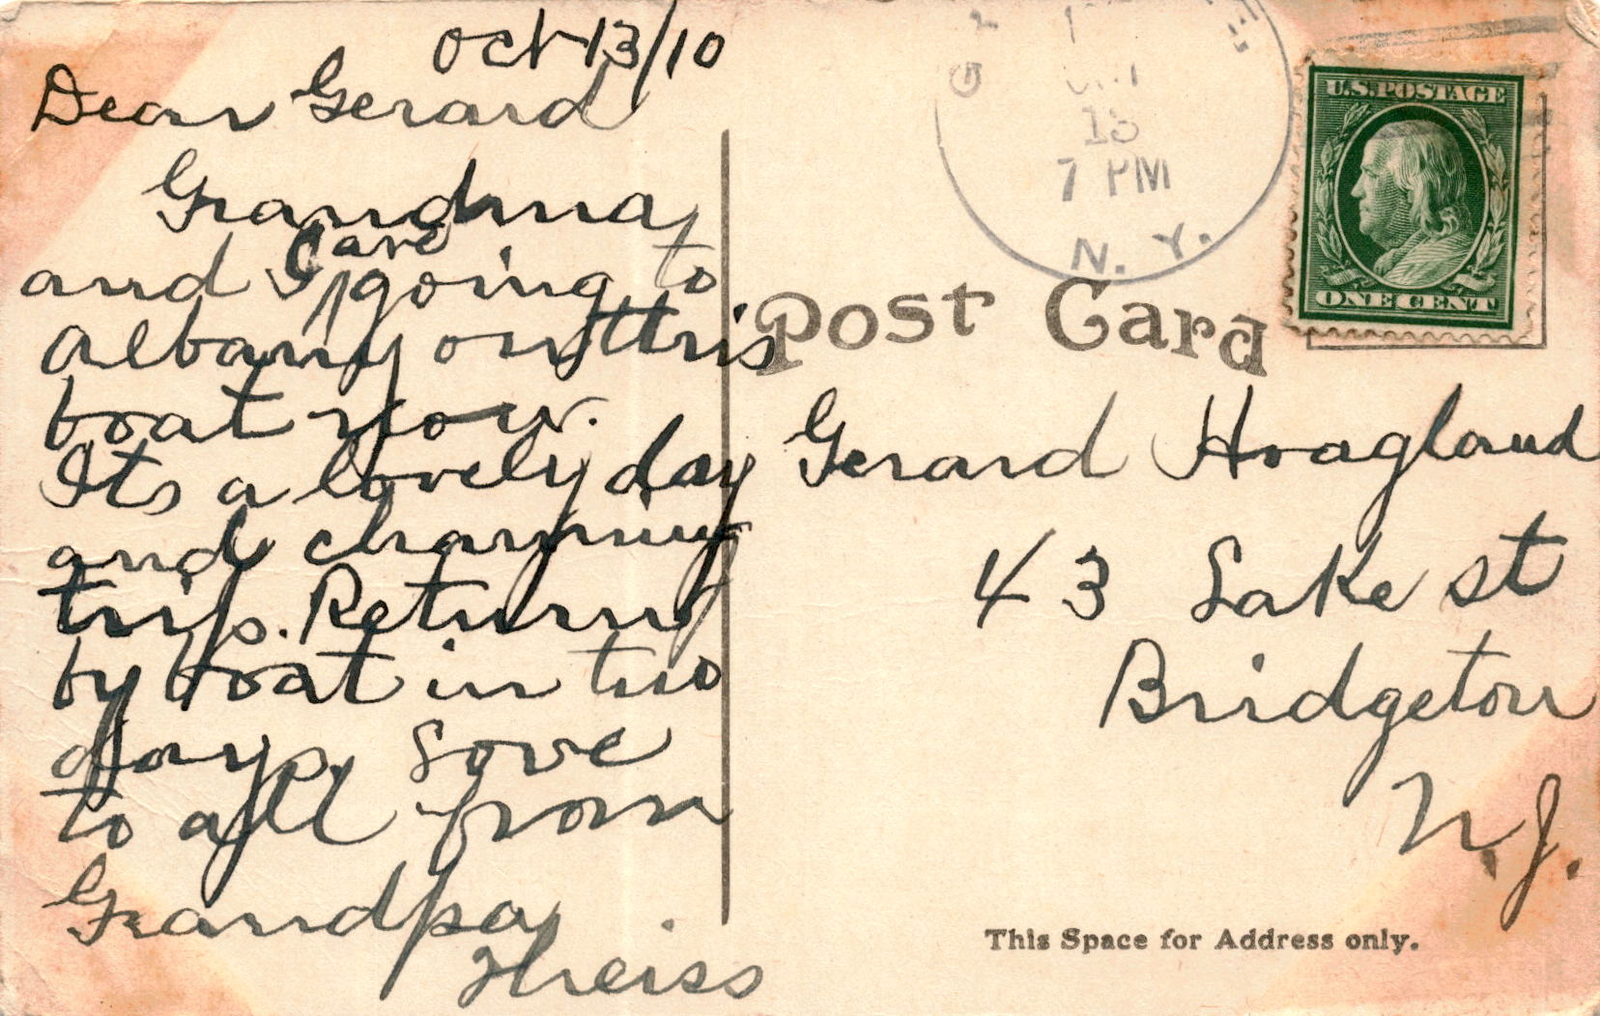 Oct 13/10
Dear Gerard
Grandma
and I are going to
Albany on this
boat now.
Its a lovely day
and charming
trip. Return
by boat in two
days. Love
to all from
Grandpa
Theiss
13
7 PM
N. Y.
U.S. POSTAGE
ONE CENT
Post Card
Gerard Hoagland
43 Lake st
Bridgeton
N.J.
This Space for Address only.